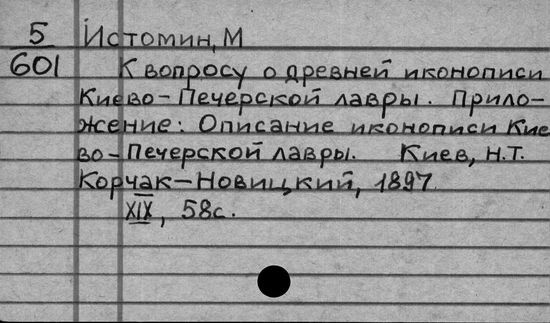 5 Истомин, М
601 К вопросу о древней иконописи
Киево-Печерской лавры. Прило-
жение: Описание иконописи Кие
во-Печерской лавры. Киев, Н.Т.
Корчак-Новицкий, 1897.
XIX, 58с.